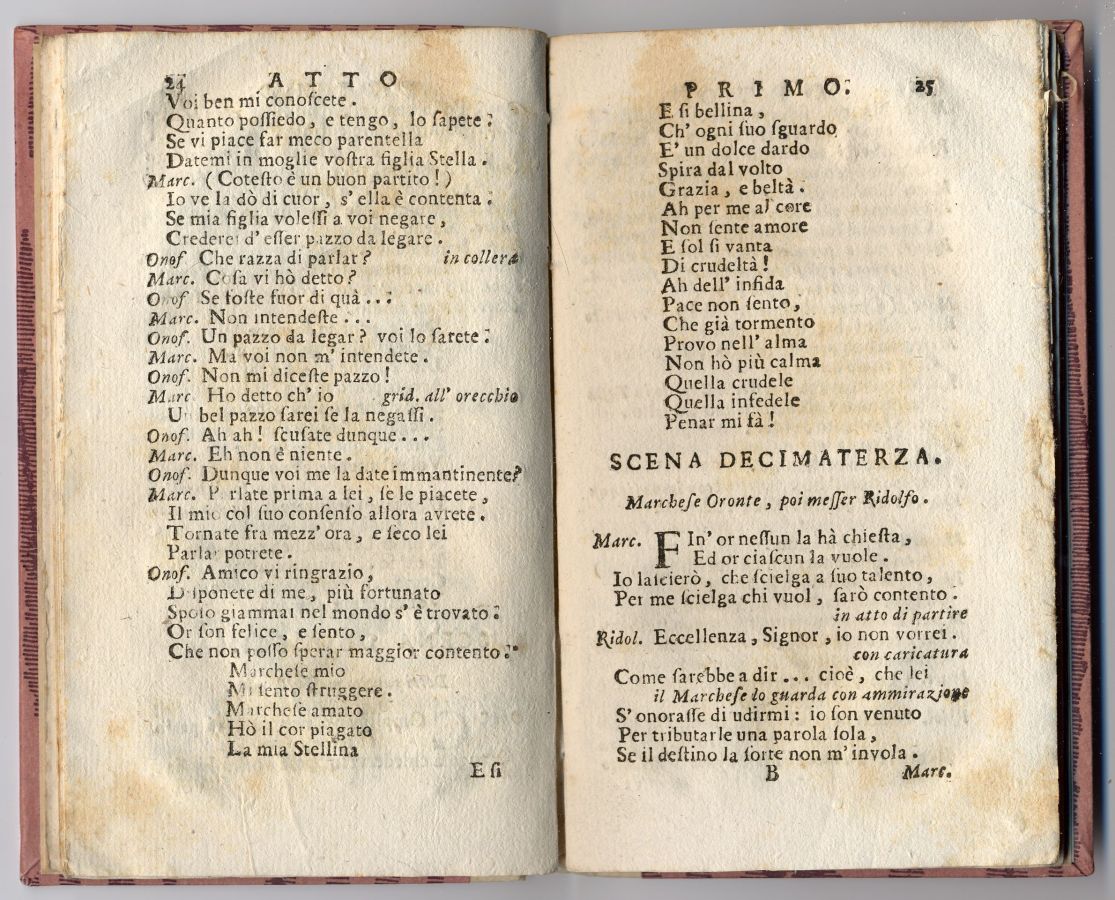 24 ATTO
Voi ben mi conoſcete.
Quanto poſſiedo, e tengo, lo ſapete:
Se vi piace far meco parentella
Datemi in moglie voſtra figlia Stella.
Marc. (Coteſto è un buon partito!)
Io ve la dò di cuor, s'ella è contenta:
Se mia figlia voleſſi a voi negare,
Crederei d'eſſer pazzo da legare.
Onof. Che razza di parlar? in collera
Marc. Coſa vi hò detto?
Onof Se foſte fuor di quà...:
Marc. Non intendeſte...
Onof. Un pazzo da legar? voi lo ſarete:
Marc. Ma voi non m'intendete.
Onof. Non mi diceſte pazzo!
Marc Ho detto ch'io grid. all'orecchio
Un bel pazzo ſarei ſe la negaſſi.
Onof. Ah ah! ſcuſate dunque...
Marc. Eh non è niente.
Onof. Dunque voi me la date immantinente?
Marc. Parlate prima a lei, ſe le piacete,
Il mio col ſuo conſenſo allora avrete.
Tornate fra mezz'ora, e ſeco lei
Parlar potrete.
Onof. Amico vi ringrazio,
Diſponete di me, più fortunato
Spoſo giammai nel mondo s'è trovato:
Or ſon felice, e ſento,
Che non poſſo ſperar maggior contento:
Marcheſe mio
Mi ſento ſtruggere.
Marcheſe amato
Hò il cor piagato
La mia Stellina
E ſi
PRIMO: 25
E ſi bellina,
Ch'ogni ſuo ſguardo
E' un dolce dardo
Spira dal volto
Grazia, e beltà.
Ah per me al core
Non ſente amore
E ſol ſi vanta
Di crudeltà!
Ah dell'infida
Pace non ſento,
Che già tormento
Provo nell'alma
Non hò più calma
Quella crudele
Quella infedele
Penar mi fà!
SCENA DECIMATERZA.
Marcheſe Oronte, poi meſſer Ridolfo.
Marc. FIn'or neſſun la hà chieſta,
Ed or ciaſcun la vuole.
Io laſcierò, che ſcielga a ſuo talento,
Per me ſcielga chi vuol, ſarò contento.
in atto di partire
Ridol. Eccellenza, Signor, io non vorrei.
con caricatura
Come ſarebbe a dir... cioè, che lei
il Marcheſe lo guarda con ammirazione
S'onoraſſe di udirmi: io ſon venuto
Per tributarle una parola ſola,
Se il deſtino la ſorte non m'invola.
B Marc.